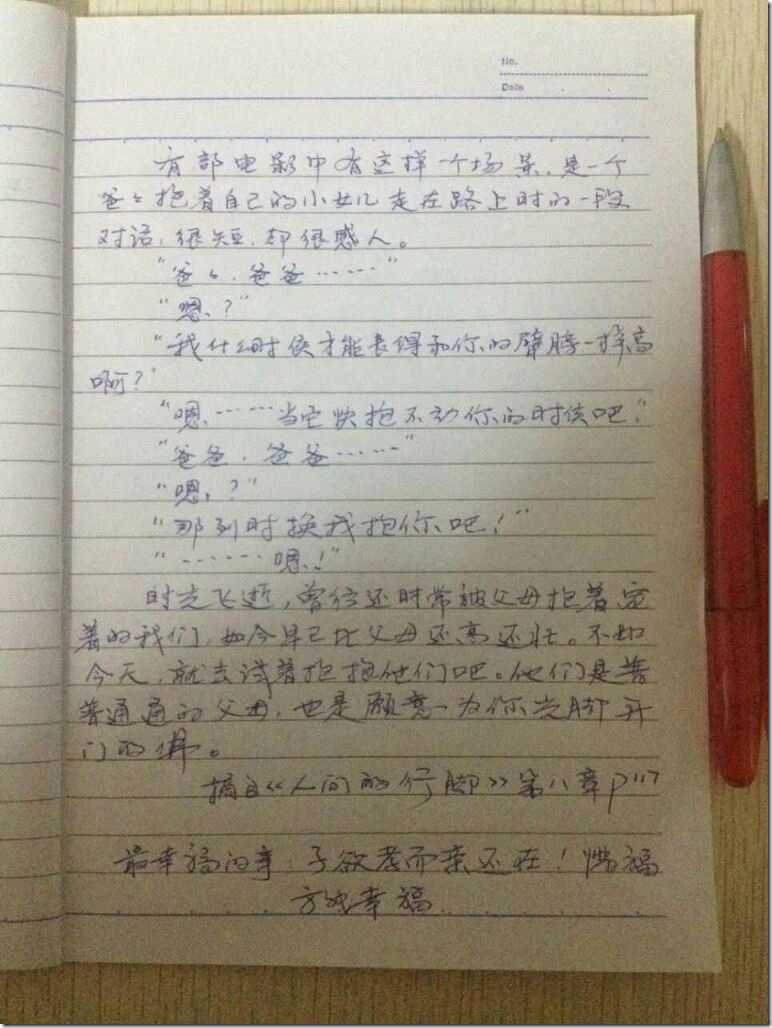 No.
Date
有部电影中有这样一个场景,是一个
爸爸抱着自己的小女儿走在路上时的一段
对话,很短,却很感人。
"爸爸,爸爸……"
"嗯,?"
"我什么时候才能长得和你的臂膀一样高
啊?"
"嗯……当它快抱不动你的时候吧."
"爸爸,爸爸……"
"嗯,?"
"那到时换我抱你吧!"
"……嗯!"
时光飞逝,曾经还时常被父母抱着宠
着的我们,如今早已比父母还高还壮。不如
今天,就去试着抱抱他们吧。他们是普
普通通的父母,也是愿意为你光脚开
门的佛。
摘自《人间的行脚》第八章P117
最幸福的事:子欲孝而亲还在!惜福
方能幸福